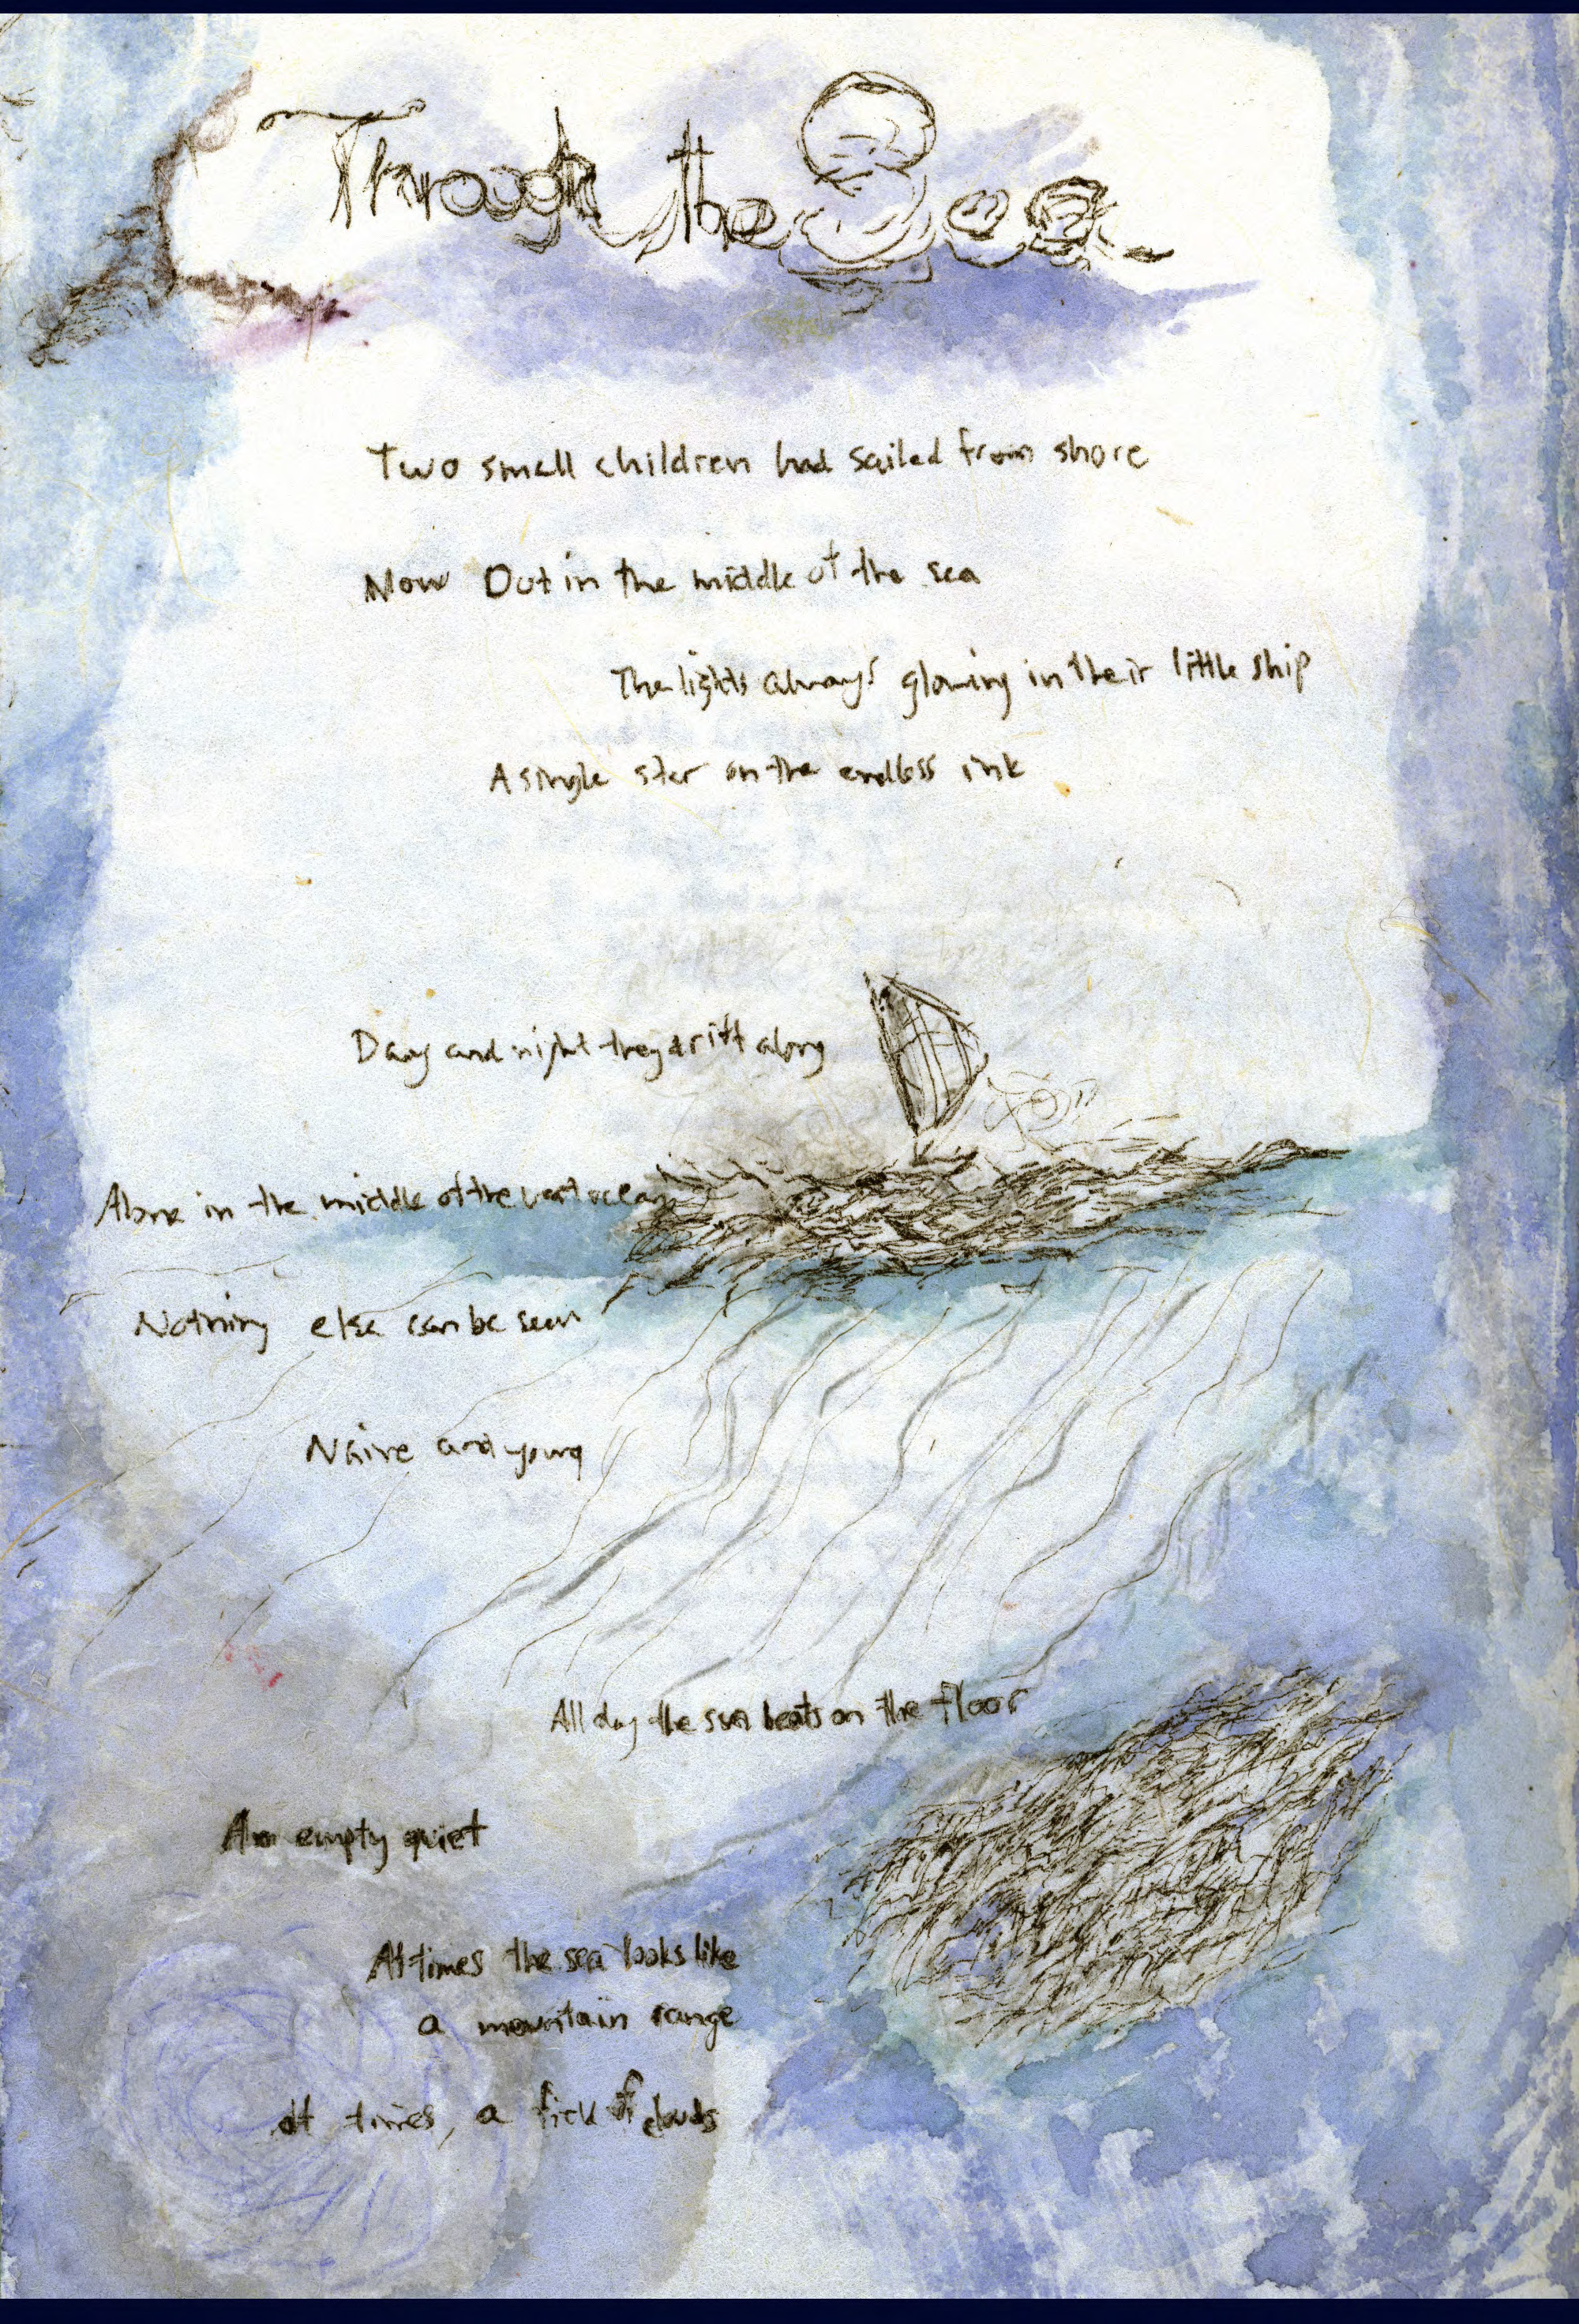 Through the Sea
Two small children had sailed from shore
Now Out in the middle of the sea
The lights always glowing in their little ship
A single star on the endless ink
Day and night they drift along
Alone in the middle of the vast ocean
Nothing else can be seen
Naive and young
All day the sun beats on the floor
An empty quiet
At times the sea looks like
a mountain range
at times, a field of clouds